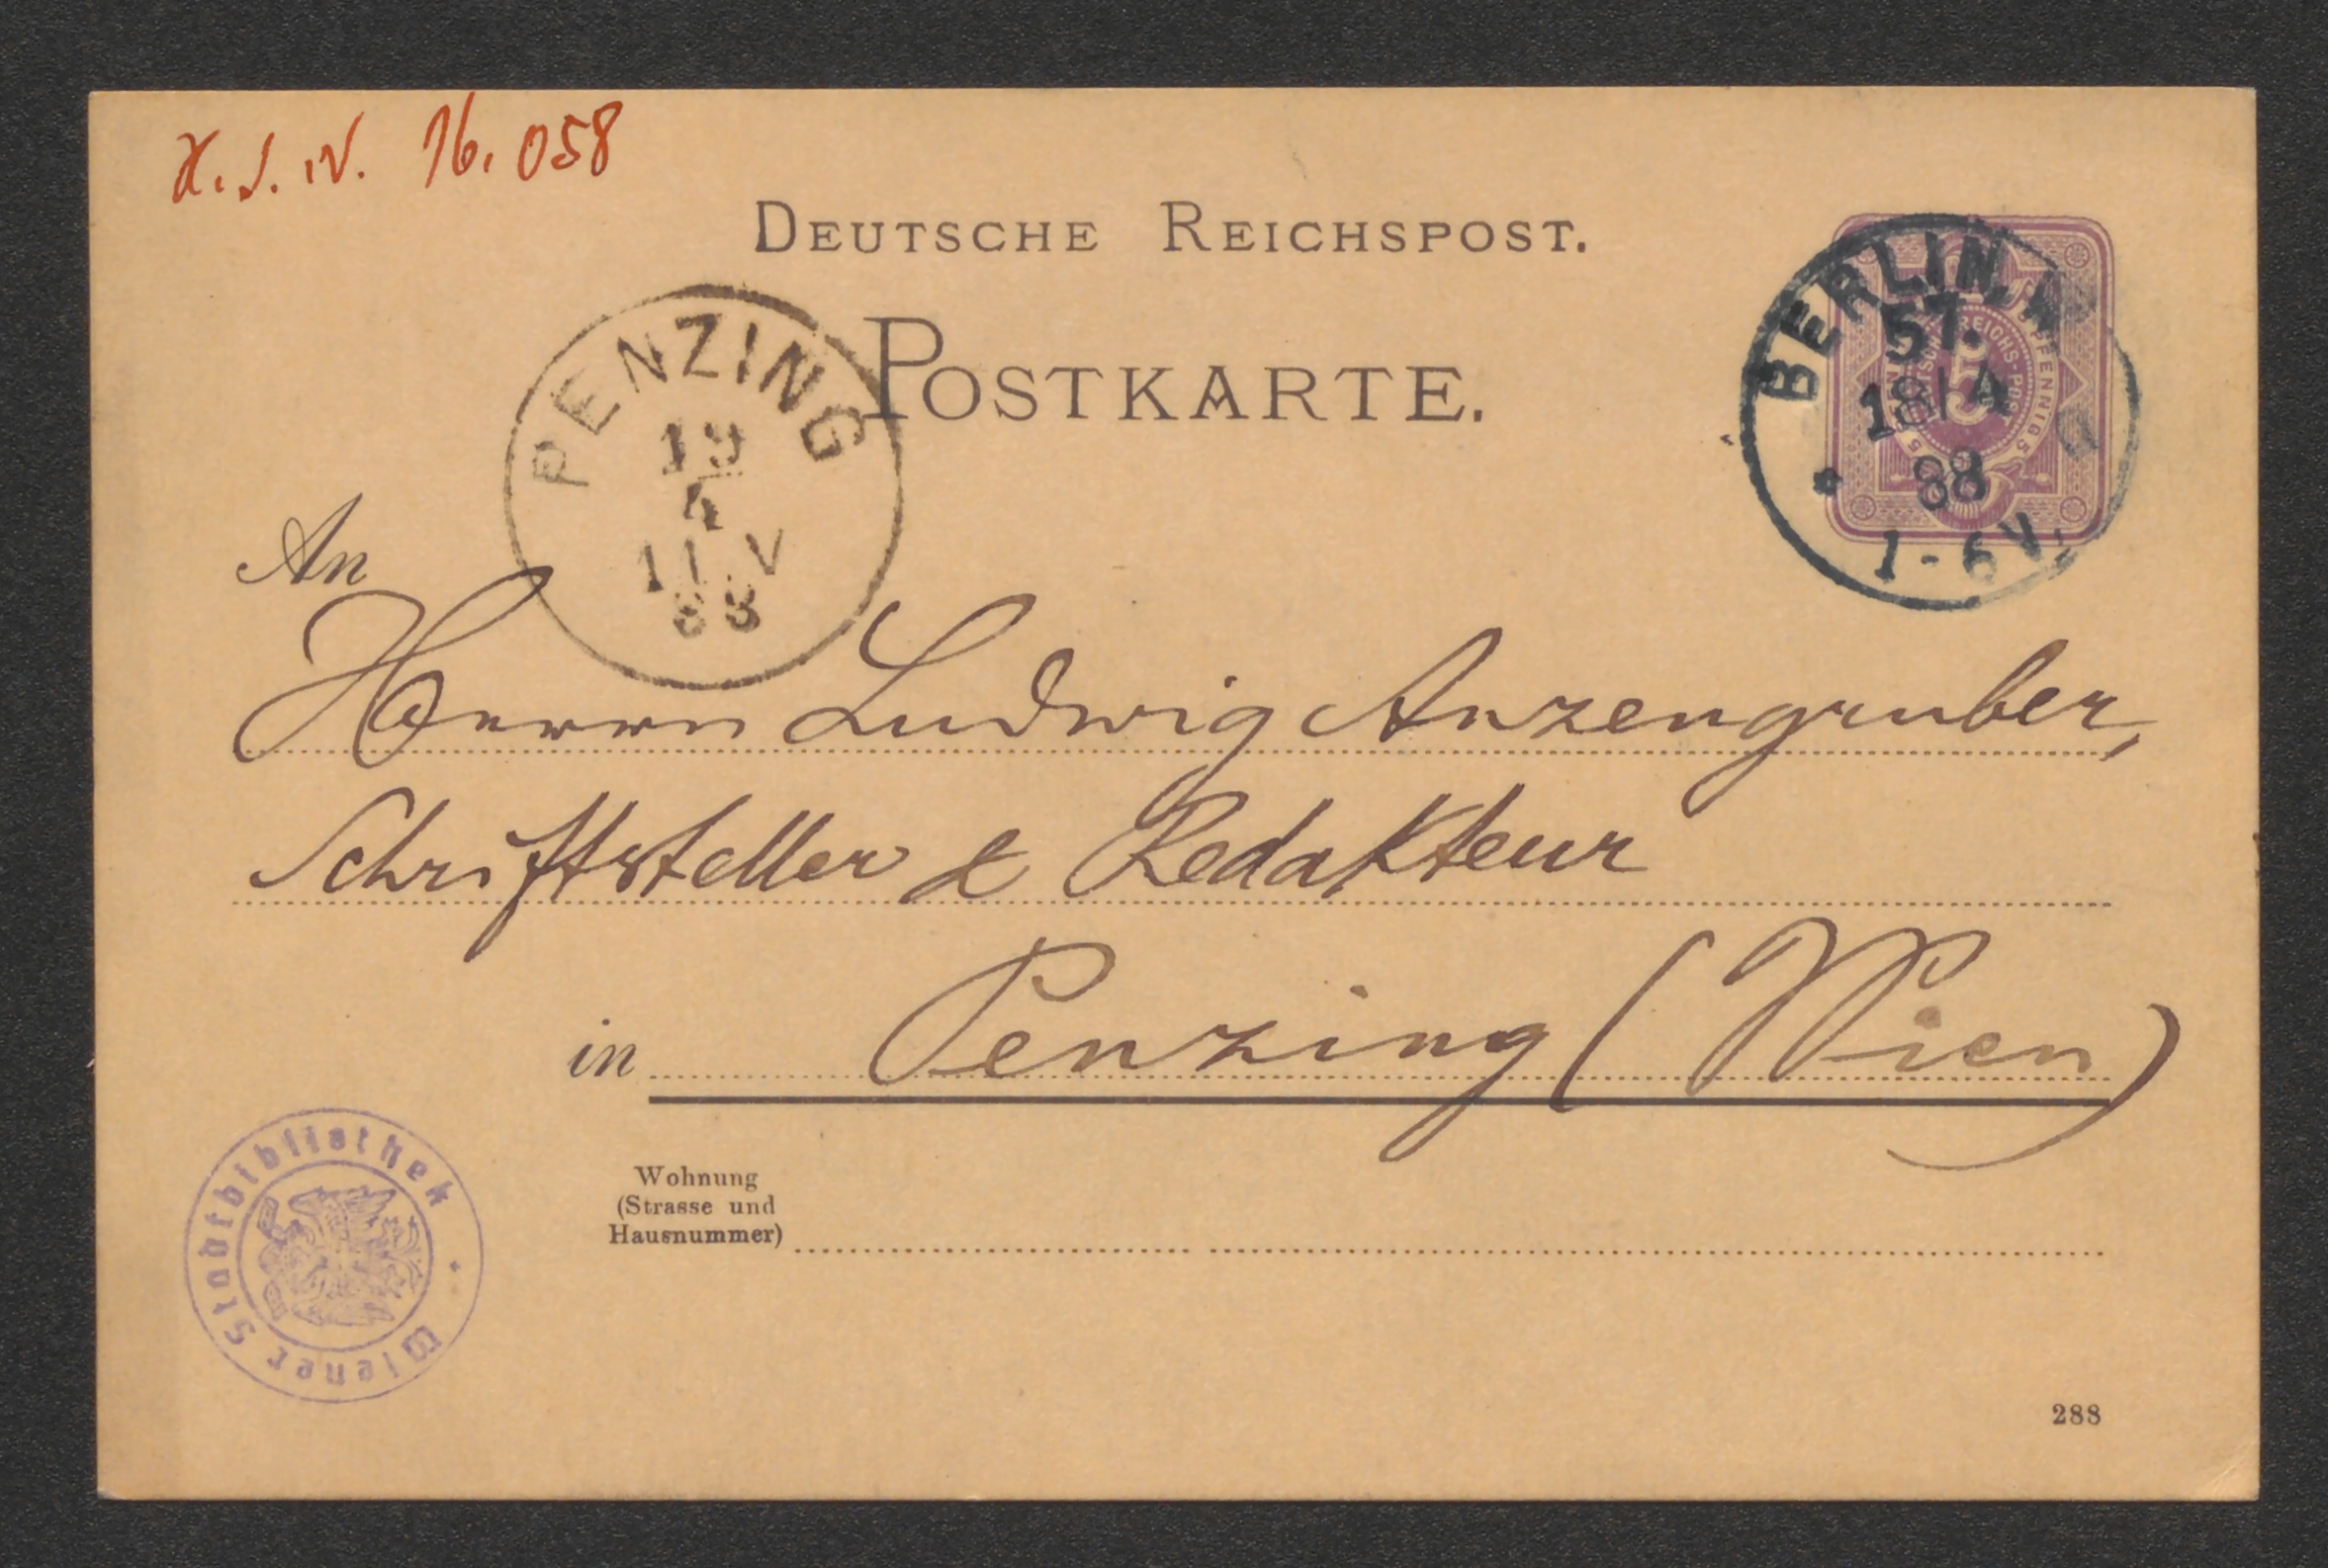 H.I.N. 16.058
DEUTSCHE REICHSPOST.
POSTKARTE.
BERLIN, W
57.
18/4
88
1-6V.
PENZING
19
4
11.V
88
An
Herrn Ludwig Anzengruber,
Schriftsteller & Redakteur
in Penzing (Wien)
Wohnung
(Strasse und
Hausnummer)
Wiener Stadtbibliothek
288